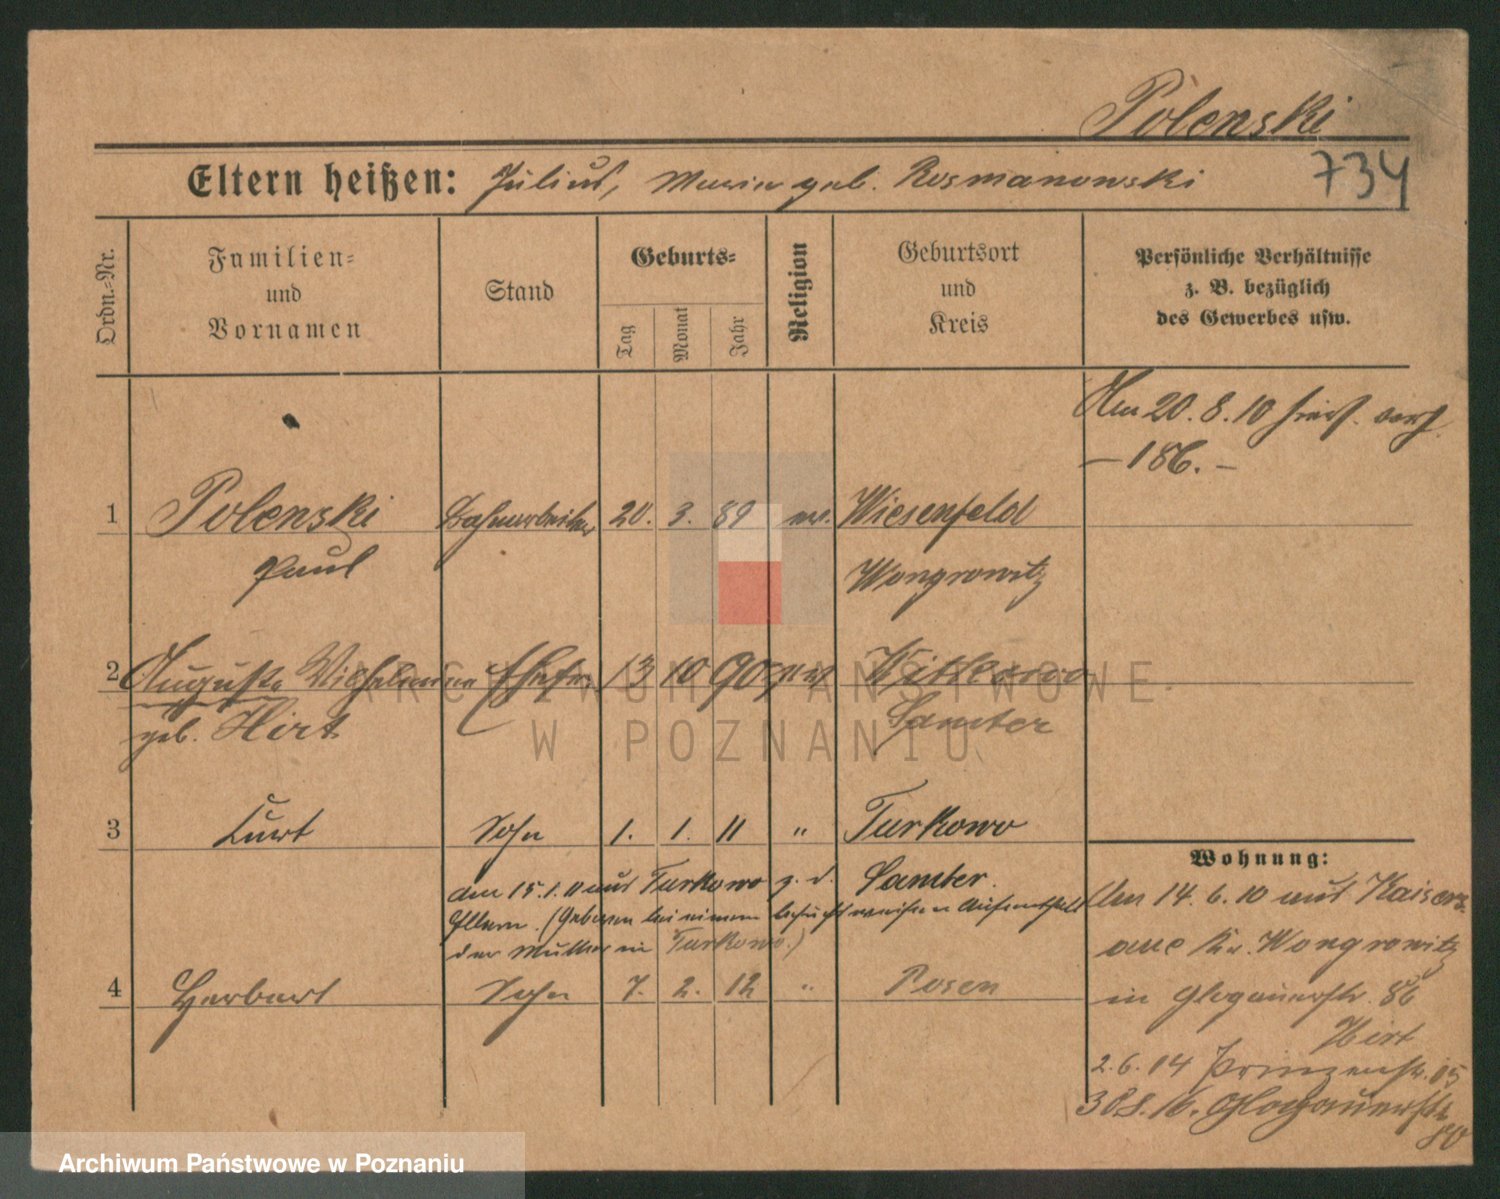 Polenski
Eltern heißen: Julius, Maria geb. Rosmanowski
734
Ordn.-Nr.
Familien-
und
Vornamen
Stand
Geburts-
Tag
Monat
Jahr
Religion
Geburtsort
und
Kreis
Persönliche Verhältnisse
z. B. bezüglich
des Gewerbes usw.
Am 20. 8. 10
— 186. —
1 Polenski Bahnarbeiter 20. 3. 89 ev. Wiesenfeld
Paul Wongrowitz
2 Auguste Wilhelmine Ehefr. 13 10 90
geb. Hirt Samter
3 Kurt Sohn 1. 1. 11 " Turkowo
am 15. 1. 11 aus Turkowo z. d. Samter.
Eltern. (Geboren bei einem besuchsweisen Aufenthalt
der Mutter in Turkowo.)
4 Herbert Sohn 7. 2. 12 " Posen
Wohnung:
Am 14. 6. 10 aus Kaisers-
aue Kr. Wongrowitz
in Glogauerstr. 86
Hirt
2. 6. 14 Prinzenstr. 15
Glogauerstr.
ARCHIWUM PAŃSTWOWE
W POZNANIU
Archiwum Państwowe w Poznaniu